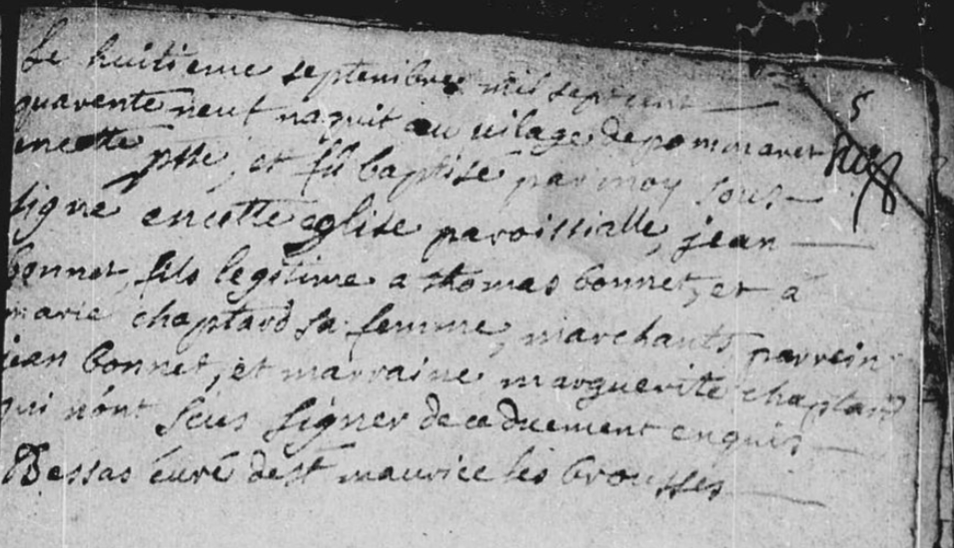 Le huitieme septembre mil sept cent
quarente neuf naquit au vilage de pommaret
encette psse, et fut baptisé par moy sous-
signé encette église paroissialle, jean
bonnet, fils legitime a thomas bonnet, et a
marie chaptard sa femme, marchants, parrein
jean bonnet, et marraine marguerite chaptard
qui n'ont sçeus signer de ce duement enquis
Dessas curé de st maurice les brousses
5